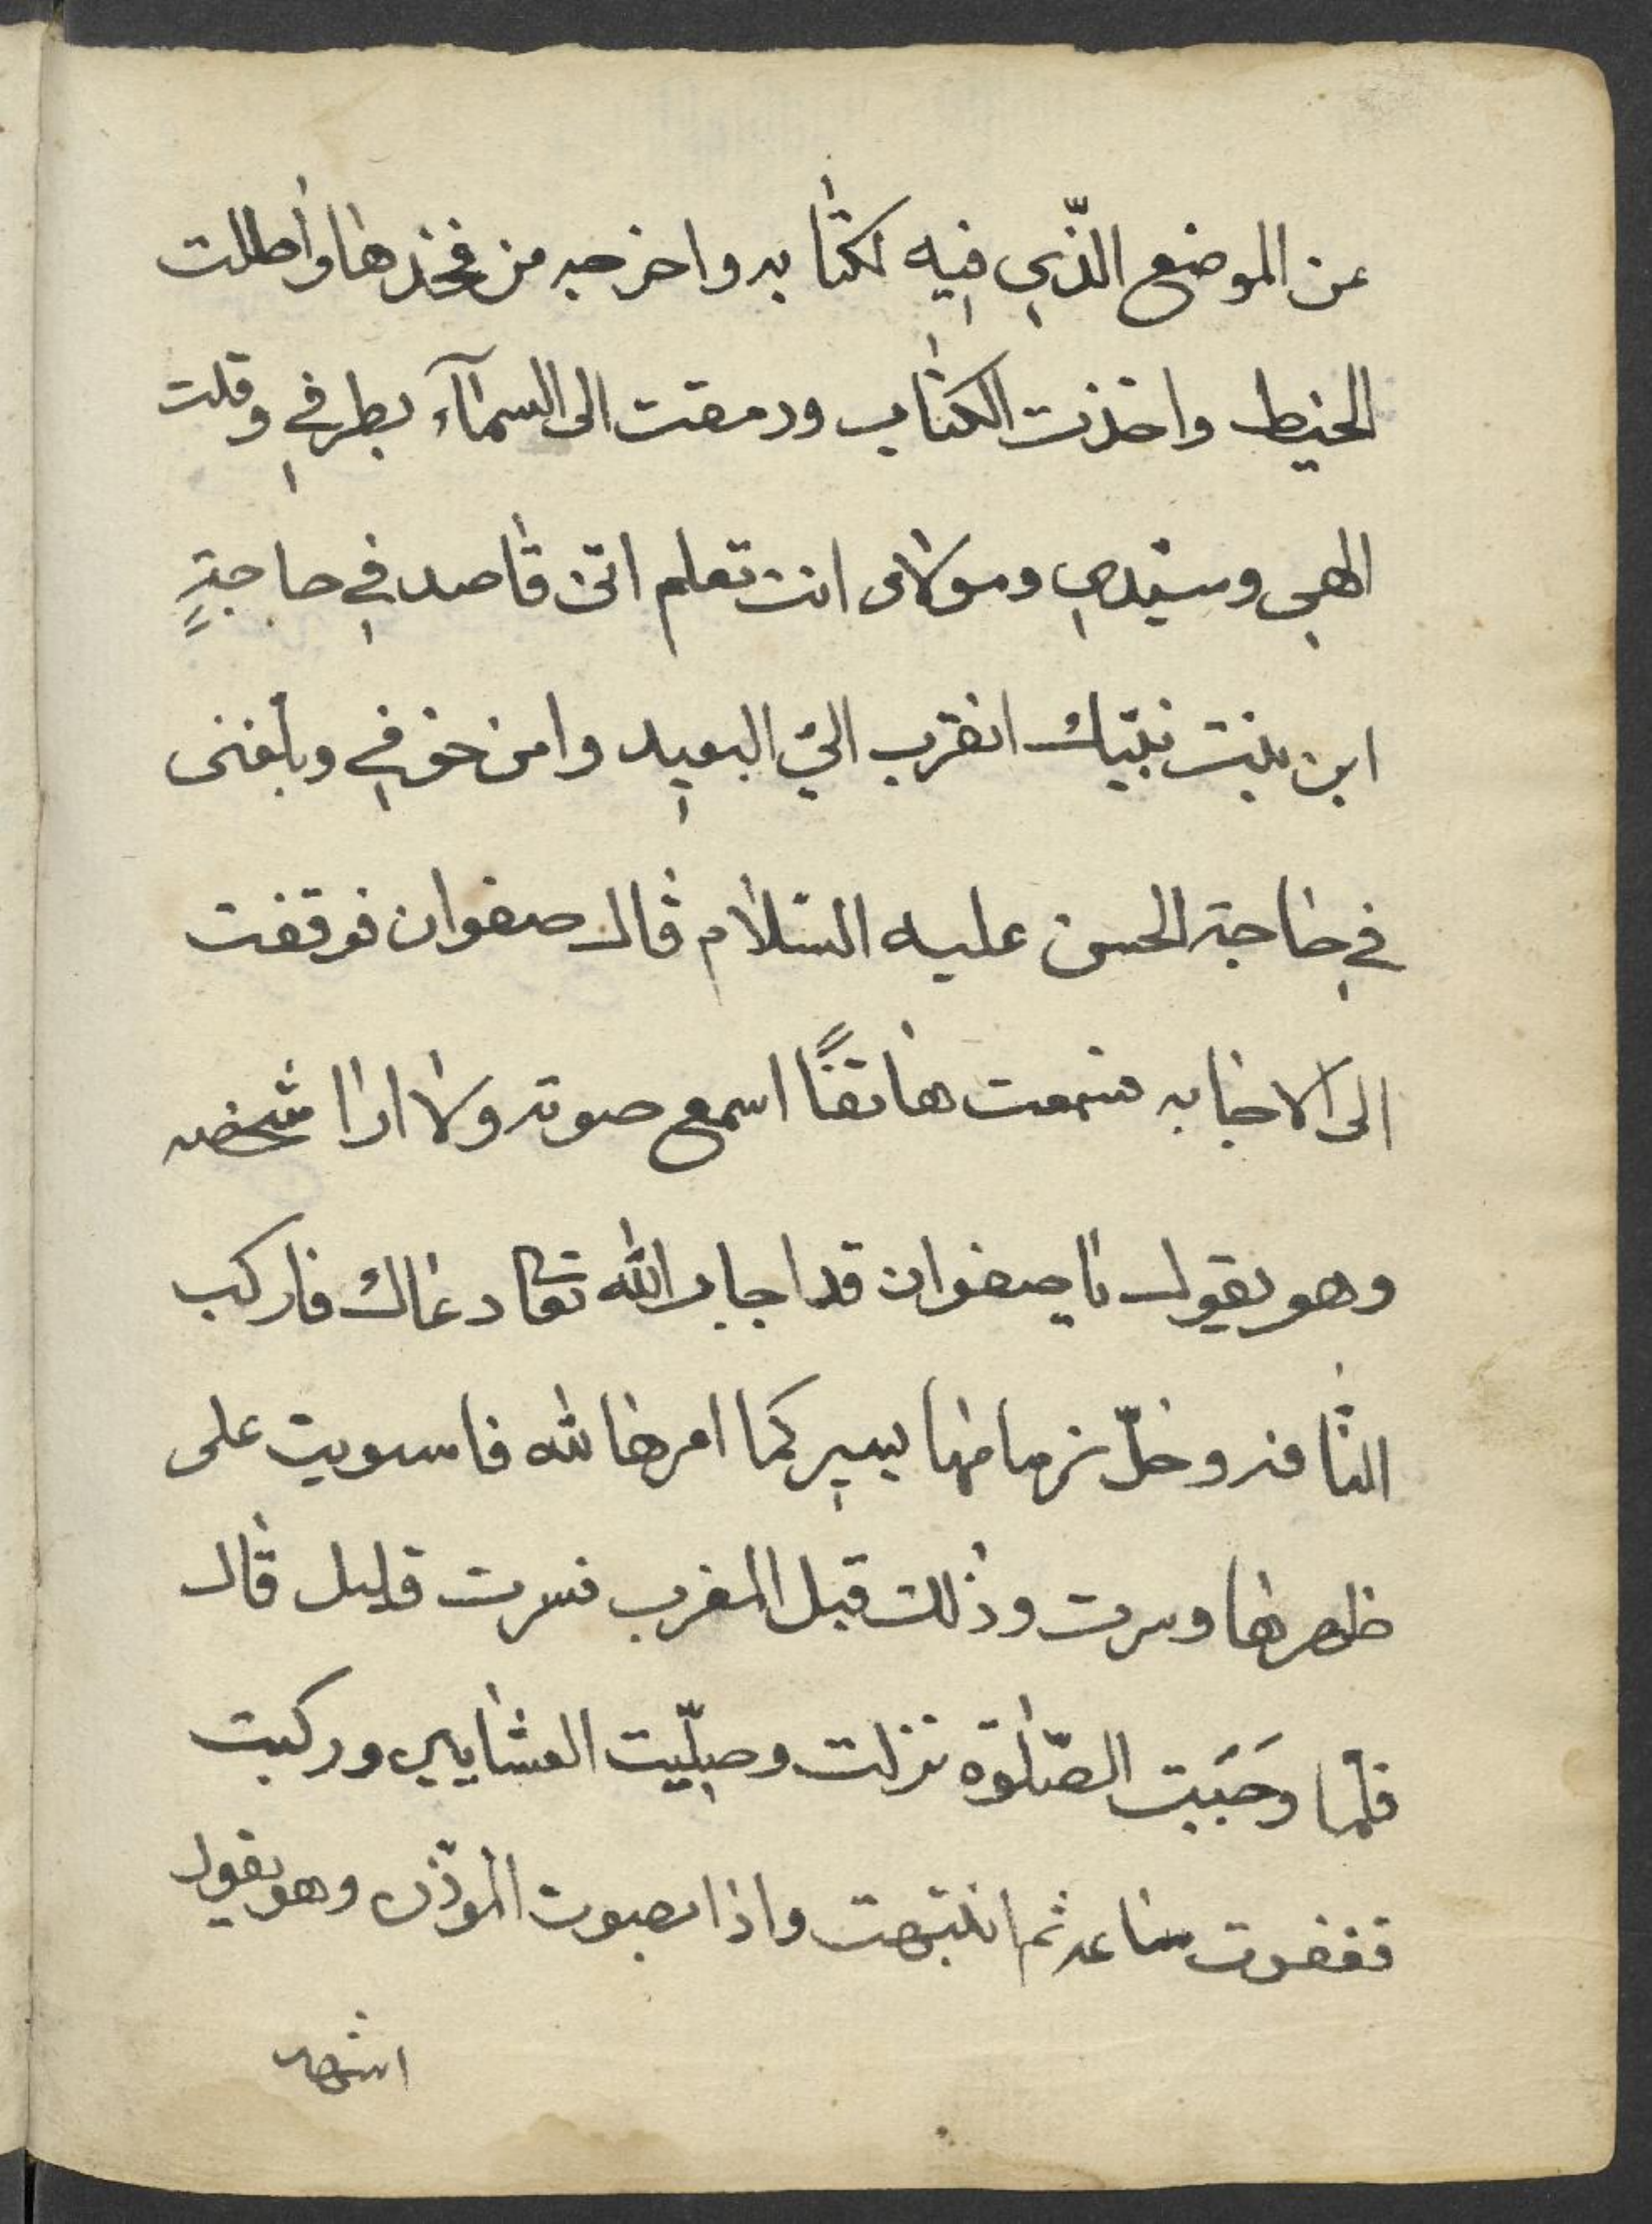 عن الموضع الّذي فيه لكتابه واخرجه من فخذها واطللت
الخيط واخذت الكتاب ورمقت الى السمآء بطرفي وقلت
الهي وسيّدي ومولاى انت تعلم انّى قاصد في حاجةٍ
ابن بنت نبيّك انقرب اليّ البعيد وامن خوفي وبلغنى
في حاجة الحسن عليه السّلام قال صفوان فوقفت
الى الاجابه فسمعت هاتفًا اسمع صوته ولا ارا شخصه
وهو يقول يا صفوان قد اجاب الله تعا دعاك فاركب
النّاقه وخلّ زمامها يسير كما امرها لله فاسويت على
ظهرها وسرت وذلك قبل المغرب فسرت قليل قال
فلما وجَبَبت الصّلوة نزلت وصلّيت العشايين وركبت
فغفوت ساعه ثم انتبهت واذا بصوت الموذّن وهو يقول
اشهد